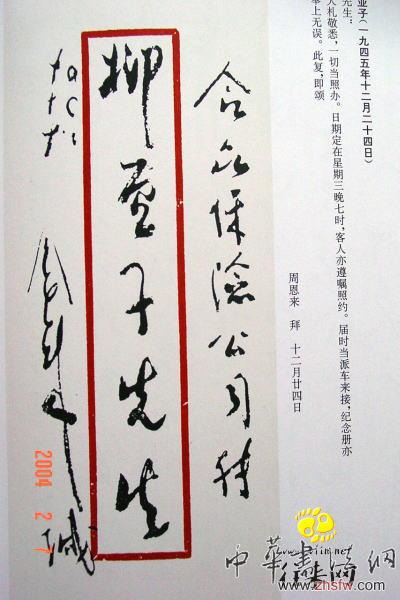 亚子(一九四五年十二月二十四日)
先生:
大札敬悉,一切当照办。日期定在星期三晚七时,客人亦遵嘱照约。届时当派车来接,纪念册亦
奉上无误。此复,即颂
周恩来 拜 十二月廿四日
合众保险公司转
柳亚子先生
2004 2 7
中華書法網
www.zhsfw.com